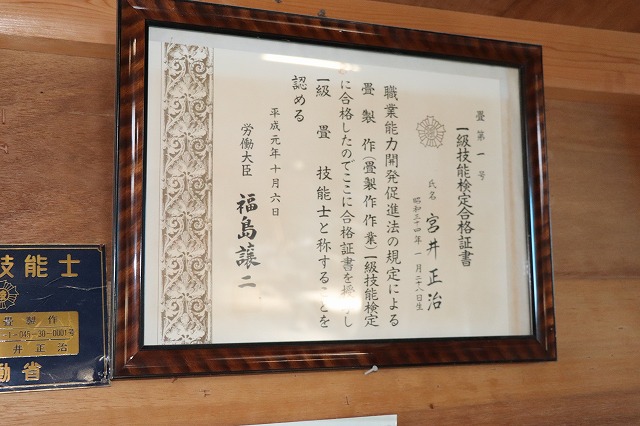 畳第一号
一級技能検定合格証書
氏名 宮井正治
昭和三十四年 一月二十八日生
職業能力開発促進法の規定による
畳製作(畳製作作業)一級技能検定
に合格したのでここに合格証書を授与し
一級 畳 技能士と称することを
認める
平成元年十月六日
労働大臣 福島譲二
技能士
畳製作
1-045-30-0001号
井正治
働省